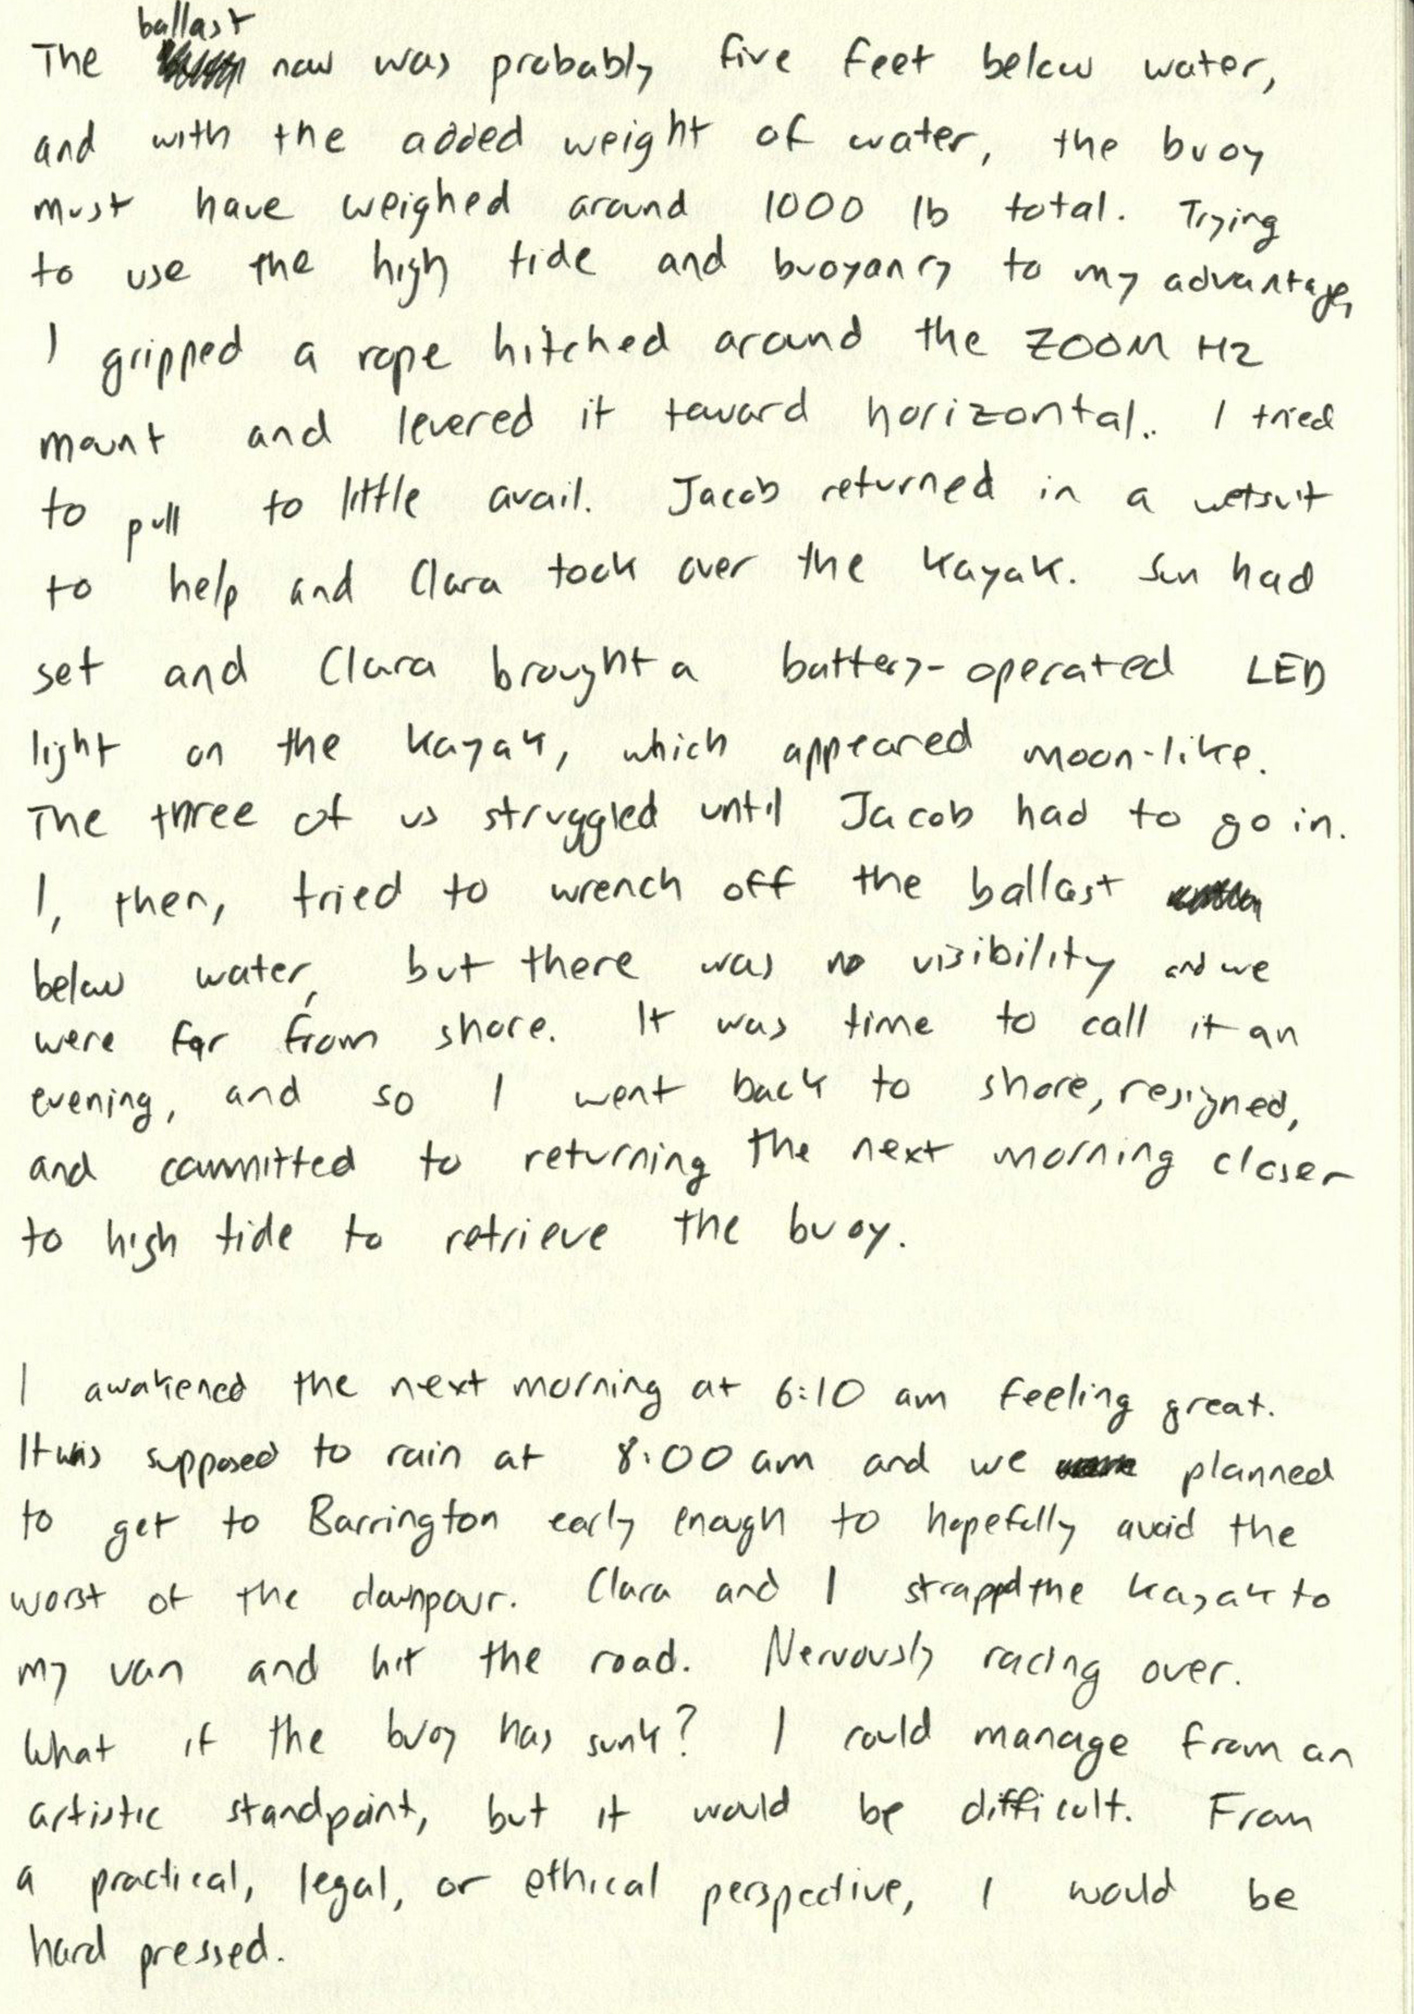 The ballast now was probably five feet below water,
and with the added weight of water, the buoy
must have weighed around 1000 lb total. Trying
to use the high tide and buoyancy to my advantage,
I gripped a rope hitched around the ZOOM H2
mount and levered it toward horizontal.. I tried
to pull to little avail. Jacob returned in a wetsuit
to help and Clara took over the kayak. Sun had
set and Clara brought a battery-operated LED
light on the kayak, which appeared moon-like.
The three of us struggled until Jacob had to go in.
I, then, tried to wrench off the ballast
below water, but there was no visibility and we
were far from shore. It was time to call it an
evening, and so I went back to shore, resigned,
and committed to returning the next morning closer
to high tide to retrieve the buoy.
I awakened the next morning at 6:10 am feeling great.
It was supposed to rain at 8:00 am and we planned
to get to Barrington early enough to hopefully avoid the
worst of the downpour. Clara and I strapped the kayak to
my van and hit the road. Nervously racing over.
What if the buoy has sunk? I could manage from an
artistic standpoint, but it would be difficult. From
a practical, legal, or ethical perspective, I would be
hard pressed.